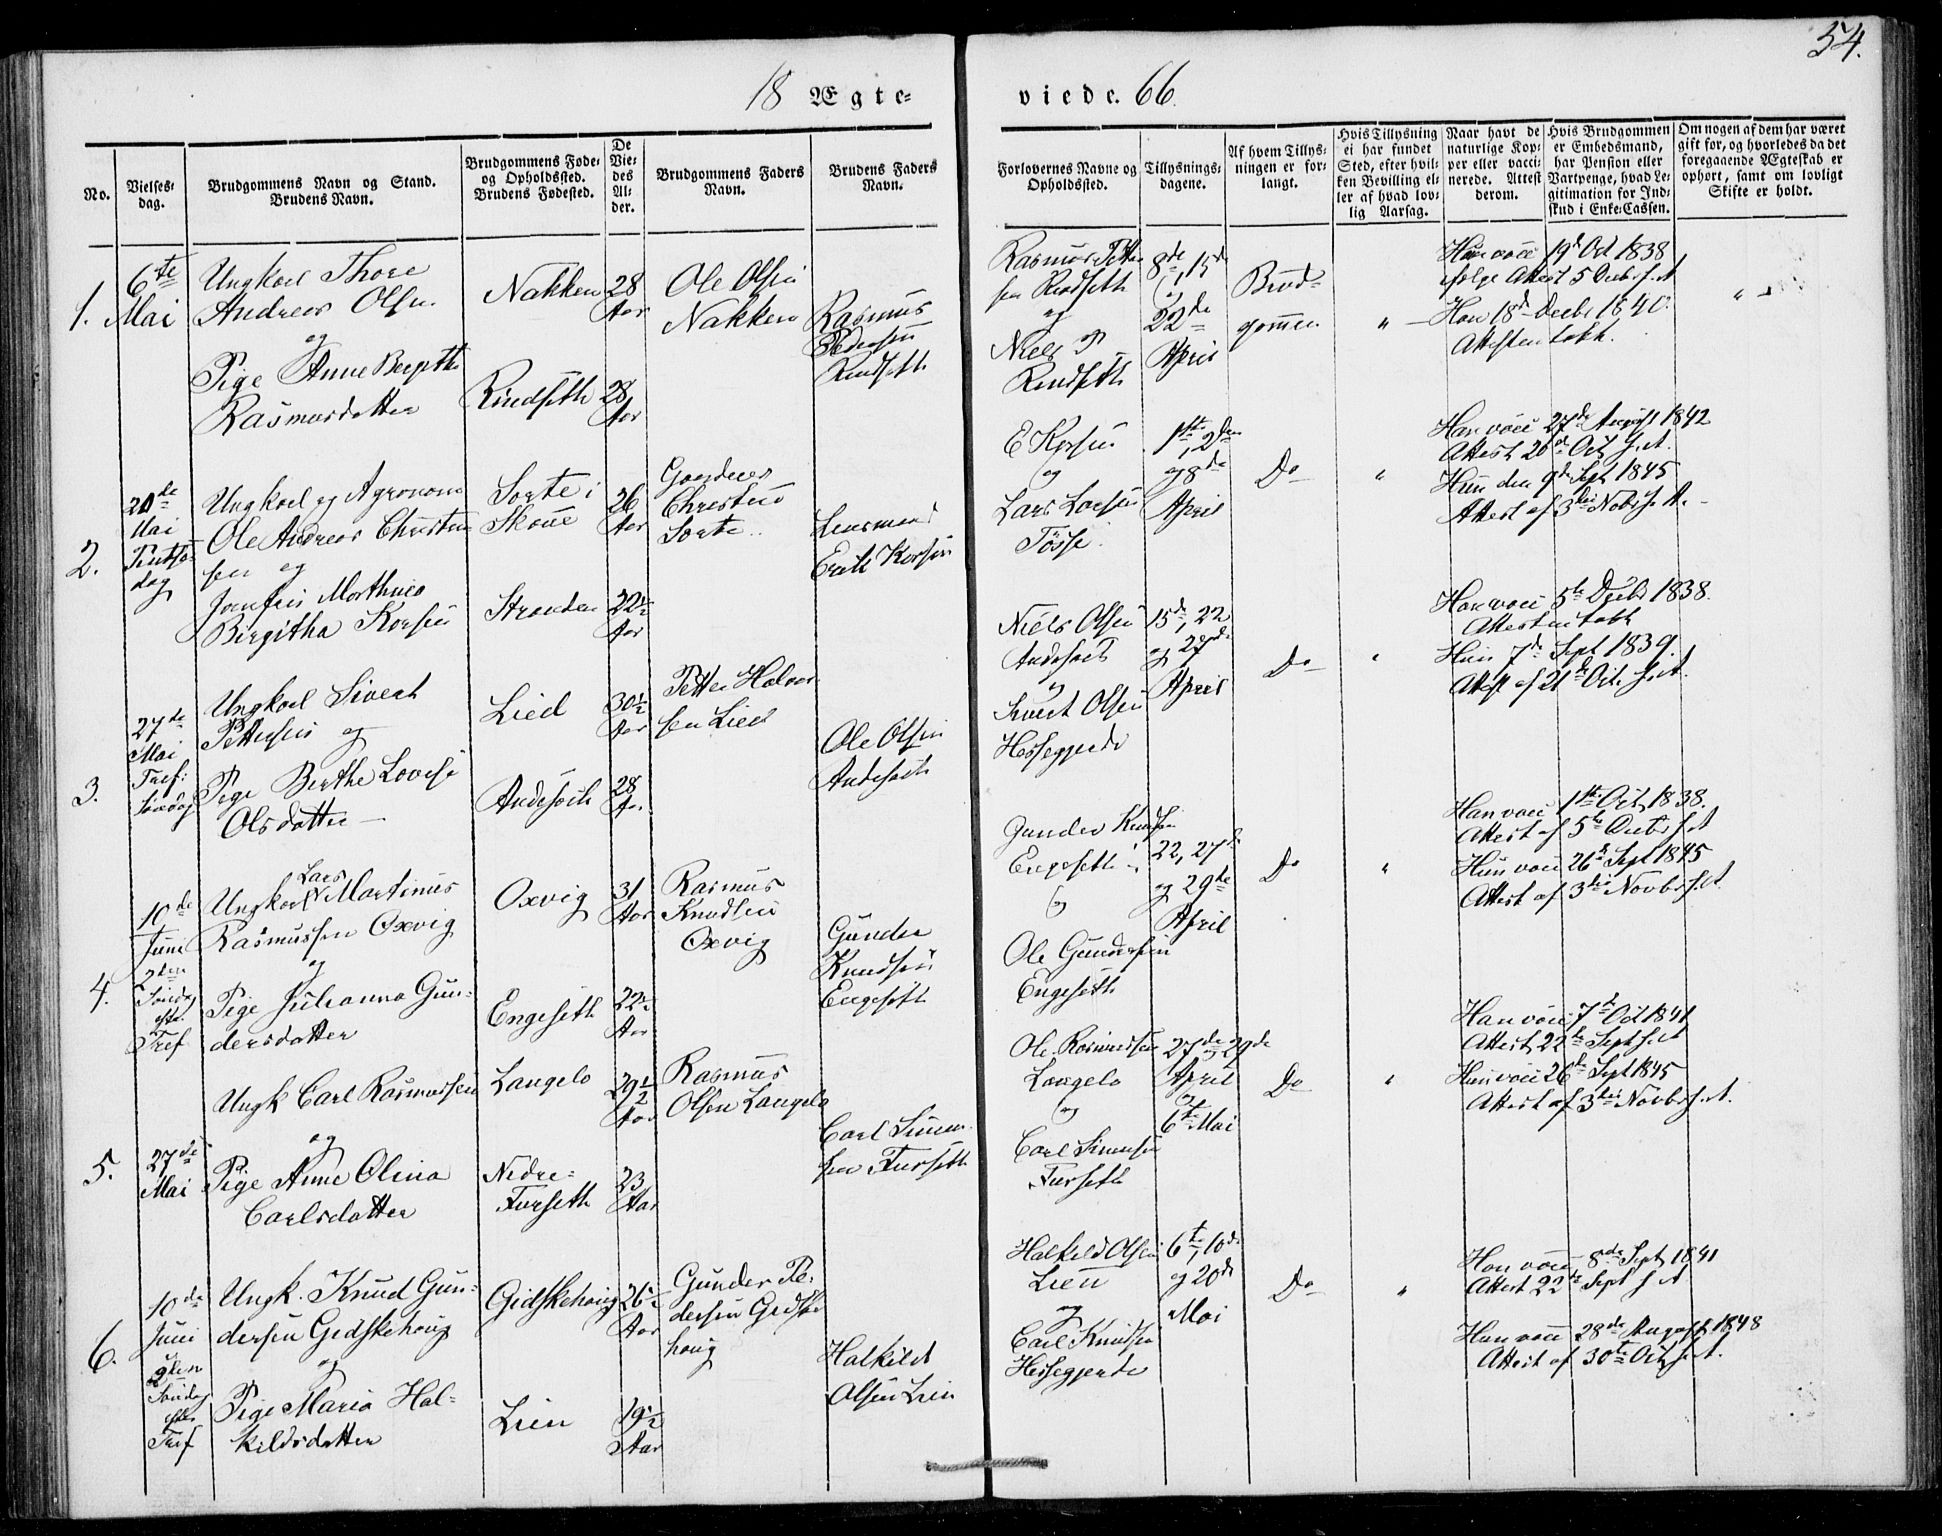 54.
18 Ægte-
viede. 66.
No.
Vielses-
dag.
Brudgommens Navn og Stand.
Brudens Navn.
Brudgommens Føde-
og Opholdssted.
Brudens Fødested.
De
Vie-
des
Al-
der.
Brudgommens Faders
Navn.
Brudens Faders
Navn.
Forlovernes Navne og
Opholdssted.
Tillysnings-
dagene.
Af hvem Tillys-
ningen er for-
langt.
Hvis Tillysning
ei har fundet
Sted, efter hvil-
ken Bevilling el-
ler af hvad lov-
lig Aarsag.
Naar havt de
naturlige Kop-
per eller vacci-
nerede. Attest
derom.
Hvis Brudgommen
er Embedsmand,
har Pension eller
Vartpenge, hvad Le-
gitimation for Ind-
skud i Enke-Cassen.
Om nogen af dem har været
gift før, og hvorledes da det
foregaaende Ægteskab er
ophørt, samt om lovligt
Skifte er holdt.
1.
6te
Mai
Ungkarl Thore
Andreas Olsen
og
Pige Anne Bergitte
Rasmusdatter
Nakken
Rindseth
28
Aar
28
Aar
Ole Olsen
Nakken
Rasmus
Pedersen
Rindseth
Rasmus Petter-
sen Rindseth
og
Niels
Rindseth
8de, 15de
og
22de
April
Brud-
gommen
"
Han vacc 19de Oct 1838
ifølge Attest 5 Decbr s. A.
Hun 18de Decbr 1840.
Attesten tabt.
"
2.
20de
Mai
Pintse
dag
Ungkarl og Agronom
Ole Andreas Christen
sen og
Jomfru Marthine
Birgitha Korsen
Sorte i
Skoue
Stranden
26
Aar
22½
Aar
Gaardmd
Christen
Sorte
Lensmand
Erik Korsen
E Korsen
og
Lars Larsen
Tøsse.
1ste, 2den
og 8de
April
Do
"
Han vacc 27de August 1842
Attest 26de Oct s. A.
Hun den 9de Sept 1845
Attest af 3die Novbr s. A.
3.
27de
Mai
Tref:
Søndag
Ungkarl Sivert
Pettersen og
Pige Berthe Lovise
Olsdatter
Lied
Andesæth
30½
Aar
28
Aar
Petter Halvor
sen Lied
Ole Olsen
Andesæth
Niels Olsen
Andesæth
og
Sivert Olsen
Hessegjerde
15de, 22
og 27de
April
Do
"
Han vacc 5te Decbr 1838.
Attesten tabt
Hun 7de Sept 1839.
Attest af 21de Oct. s. A.
4.
10de
Juni
2den
Søndag
efter
Tref
Ungkarl Lars Martinus
Rasmussen Oxvig
og
Pige Julianna Gun-
dersdatter
Oxvig
Engeseth
31
Aar
22½
Aar
Rasmus
Knudsen
Oxvig
Gunder
Knudsen
Engeseth
Gunder Knudsen
Engeseth
og
Ole Gundersen
Engeseth
22, 27de
og 29de
April
Do
"
Han vacc 1ste Oct, 1838.
Attest af 5te Decbr s. A
Hun vacc 26de Sept 1845
Attest af 3die Novbr s. A.
5.
27de
Mai
Ungk Carl Rasmussen
og
Pige Anne Olina
Carlsdatter
Langelo
Nedre-
Furseth
29½
Aar
23
Aar
Rasmus
Olsen Langelo
Carl Simen-
sen Furseth
Ole Rasmussen
Langelo
og
Carl Simensen
Furseth
27de, 29de
April
og
6te Mai
Do
"
Han vacc 7de Oct 1841
Attest 22de Sept s. A
Hun vacc 26de Sept 1845
Attest af 3die Novbr s. A.
6.
10de
Juni
2den
Søndag
efter
Tref
Ungk. Knud Gun-
dersen Gidskehoug
og
Pige Maria Hal-
kildsdatter
Gidskehoug
Lien
26½
Aar
19½
Aar
Gunder Pe-
dersen Gidske
houg
Halkild
Olsen Lien
Halkild Olsen
Lien
og
Carl Knudsen
Hessegjerde
6te, 10de
og 20de
Mai
Do
"
Han vacc 8de Sept 1841
Attest 22de Sept s. A
Hun vacc 28de August 1848
Attest af 30te Oct s. A.